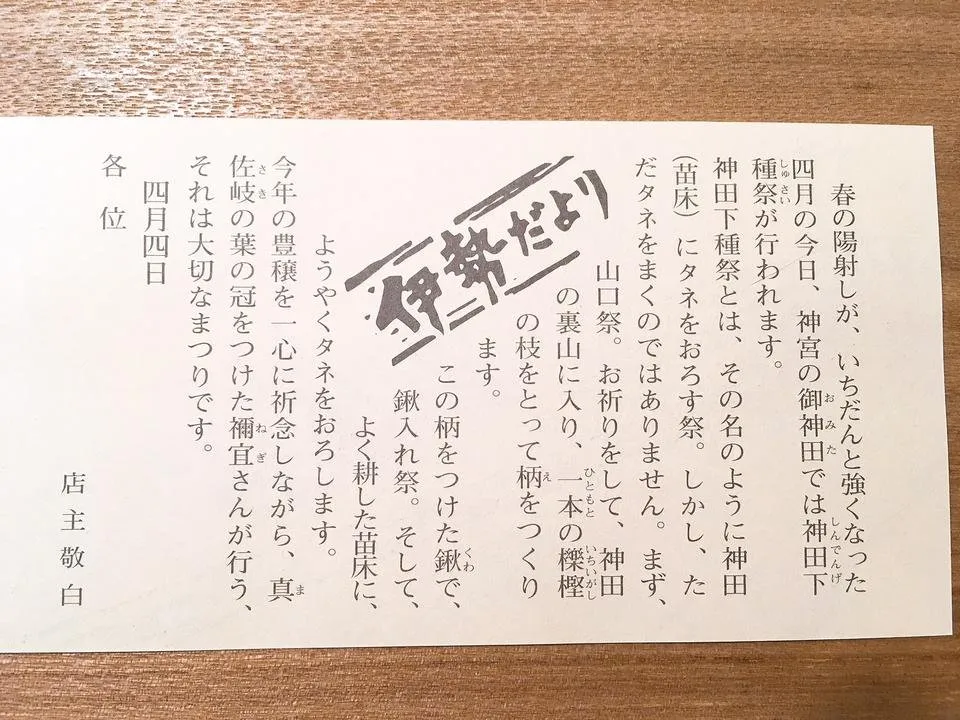 春の陽射しが、いちだんと強くなった
四月の今日、神宮の御神田では神田下
種祭が行われます。
神田下種祭とは、その名のように神田
(苗床)にタネをおろす祭。しかし、た
だタネをまくのではありません。まず、
山口祭。お祈りをして、神田
の裏山に入り、一本の櫟樫
の枝をとって柄をつくり
ます。
この柄をつけた鍬で、
鍬入れ祭。そして、
よく耕した苗床に、
ようやくタネをおろします。
今年の豊穣を一心に祈念しながら、真
佐岐の葉の冠をつけた禰宜さんが行う、
それは大切なまつりです。
四月四日
各位
店主敬白
伊勢だより
おみた
しんでんげ
しゅさい
ひともと
いちいがし
え
くわ
ま
さき
ねぎ